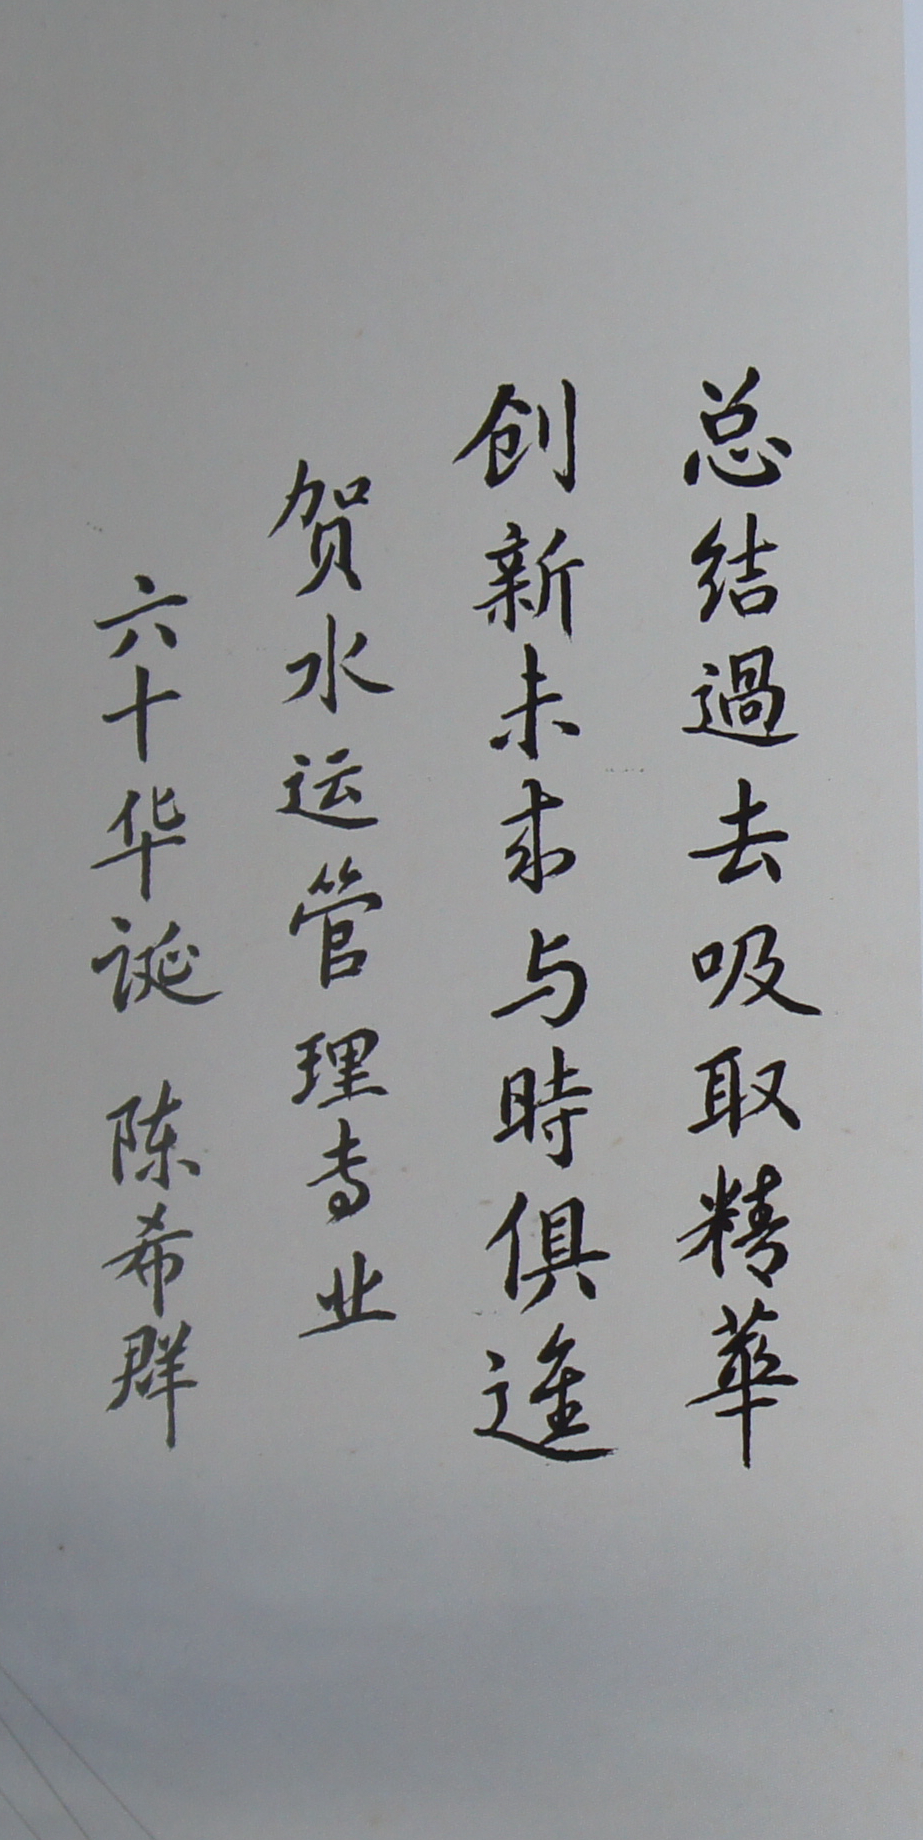 总结過去吸取精華
创新未来与時俱進
贺水运管理专业
六十华诞 陈希群